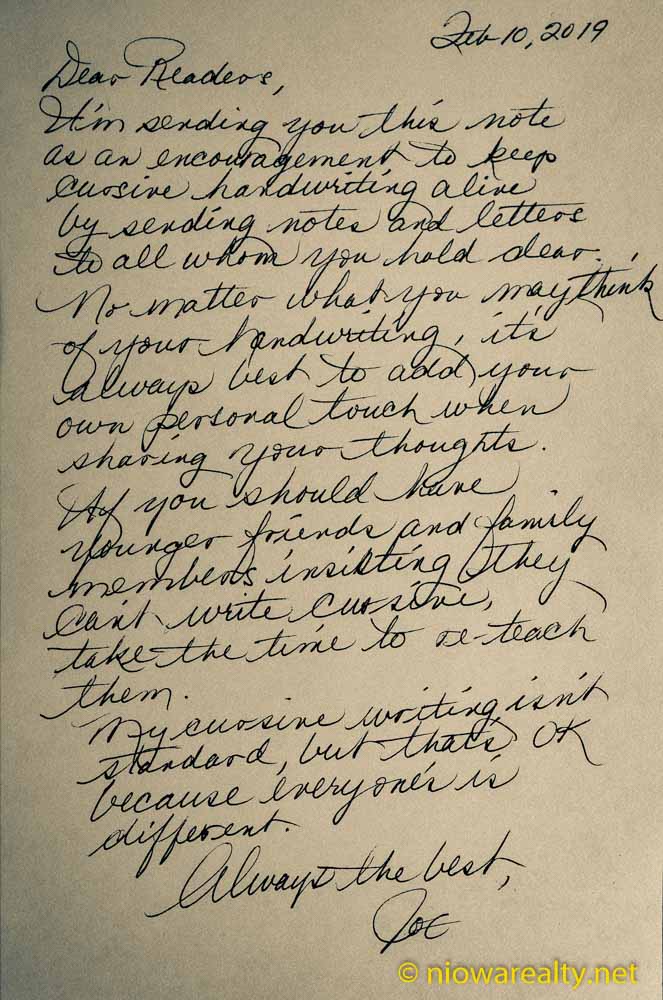 Feb 10, 2019
Dear Readers,
I'm sending you this note
as an encouragement to keep
cursive handwriting alive
by sending notes and letters
to all whom you hold dear.
No matter what you may think
of your handwriting, it's
always best to add your
own personal touch when
sharing your thoughts.
If you should have
younger friends and family
members insisting they
can't write cursive,
take the time to re-teach
them.
My cursive writing isn't
standard, but that's OK
because everyone's is
different.
Always the best,
Joe
© niowarealty.net